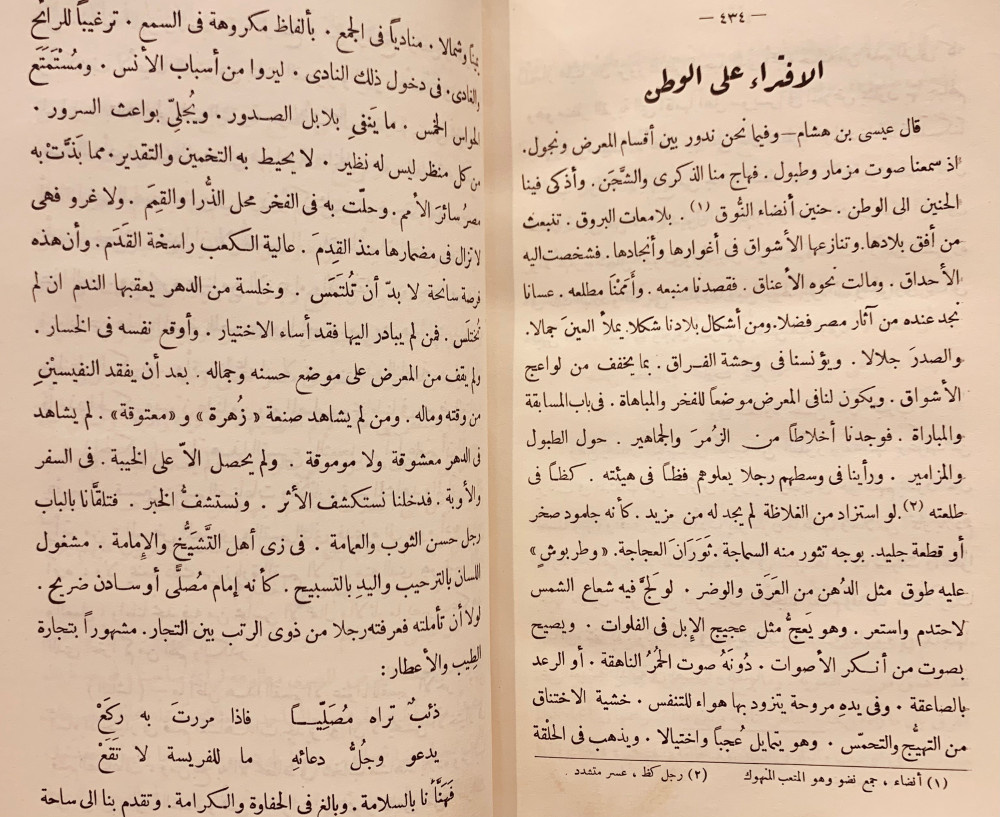 — ٤٣٤ —
الافتراء على الوطن
قال عيسى بن هشام—وفيما نحن ندور بين أقسام المعرض ونجول.
اذ سمعنا صوت مزمار وطبول. فهاج منا الذكرى والشَّجَن. وأذكى فينا
الحنين الى الوطن. حنين أنضاء النُّوق (١). بلامعات البروق. تنبعث
من أفق بلادها. وتنازعها الأشواق فى أغوارها وأنجادها. فشخصت اليه
الأحداق. ومالت نحوه الأعناق. فقصدنا منبعه. وأَمَمْنَا مطلعه. عسانا
نجد عنده من آثار مصر فضلا. ومن أشكال بلادنا شكلا. يملأ العينَ جمالا.
والصدرَ جلالا. ويؤنسنا فى وحشة الفراق. بما يخفف من لواعج
الأشواق. ويكون لنا فى المعرض موضعاً للفخر والمباهاة. فى باب المسابقة
والمباراة. فوجدنا أخلاطاً من الزُمَرَ والجماهير. حول الطبول
والمزامير. ورأينا فى وسطهم رجلا يعلوهم فظاً فى هيئته. كظاً فى
طلعته (٢). لو استزاد من الغلاظة لم يجد له من مزيد. كأنه جلمود صخر
أو قطعة جليد. بوجه تثور منه السماجة. ثَوَرَانَ العجاجة. «وطربوش»
عليه طوق مثل الدُهن من العَرَق والوضر. لو لَجَّ فيه شعاع الشمس
لاحتدم واستعر. وهو يَعجُّ مثل عجيج الإبل فى الفلوات. ويصيح
بصوت من أنكر الأصوات. دُونَهُ صوت الحُمُرُ الناهقة. أو الرعد
بالصاعقة. وفى يدهِ مروحة يتزود بها هواء للتنفس. خشية الاختناق
من التهيُّج والتحمّس. وهو يتمايل عُجباً واختيالا. ويذهب فى الحلْقة
(١) أنضاء، جمع نضو وهو المتعب المنهوك (٢) رجل كظ، عسر متشدد.
يميناً وشمالا. منادياً فى الجمع. بألفاظ مكروهة فى السمع. ترغيباً للرائح
والغادى. فى دخول ذلك النادى. ليروا من أسباب الأنس. ومُسْتَمْتَع
الحواس الخمس. ما يَنفى بلابل الصدور. ويُجَلِّى بواعث السرور.
من كل منظر ليس له نظير. لا يحيط به التخمين والتقدير. مما بَذَّتْ به
مصرُ سائرَ الأمم. وحلّت به فى الفخر محل الذُّرا والقِمَم. ولا غرو فهى
لا تزال فى مضمارها منذ القِدمَ. عالية الكعب راسخة القَدَم. وأن هذه
فرصة سانحة لا بدّ أن تُلتَمَس. وخلسة من الدهر يعقبها الندم ان لم
تُختلَس. فمن لم يبادر اليها فقد أساء الاختيار. وأوقع نفسه فى الخسار.
ولم يقف من المعرض على موضع حسنه وجماله. بعد أن يفقد النفيسيْن
من وقته وماله. ومن لم يشاهد صنعة «زُهرة» و«معتوقة». لم يشاهد
فى الدهر معشوقة ولا موموقة. ولم يحصل الاّ على الخيبة. فى السفر
والأوبة. فدخلنا نستكشف الأثر. ونستشفُّ الخبر. فتلقَّانا بالباب
رجل حسن الثوب والعمامة. فى زى أهل التَّشَيُّخ والإمامة. مشغول
اللسان بالترحيب واليدِ بالتسبيح. كأنه إمام مُصلَّى أو سادن ضريح.
لولا أن تأملته فعرفته رجلا من ذوى الرتب بين التجار. مشهوراً بتجارة
الطِيب والأعطار:
ذئبٌ تراه مُصَلِّيــاً فاذا مررتَ به ركعْ
يدعو وجُلُّ دعائهِ ما للفريسة لا تقَعْ
فَهَنَّأنا بالسلامة. وبالغ فى الحفاوة والكرامة. وتقدم بنا الى ساحة